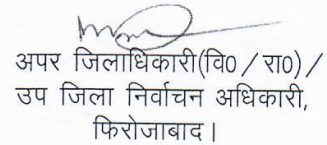 अपर जिलाधिकारी(वि0/रा0)/
उप जिला निर्वाचन अधिकारी,
फिरोजाबाद।